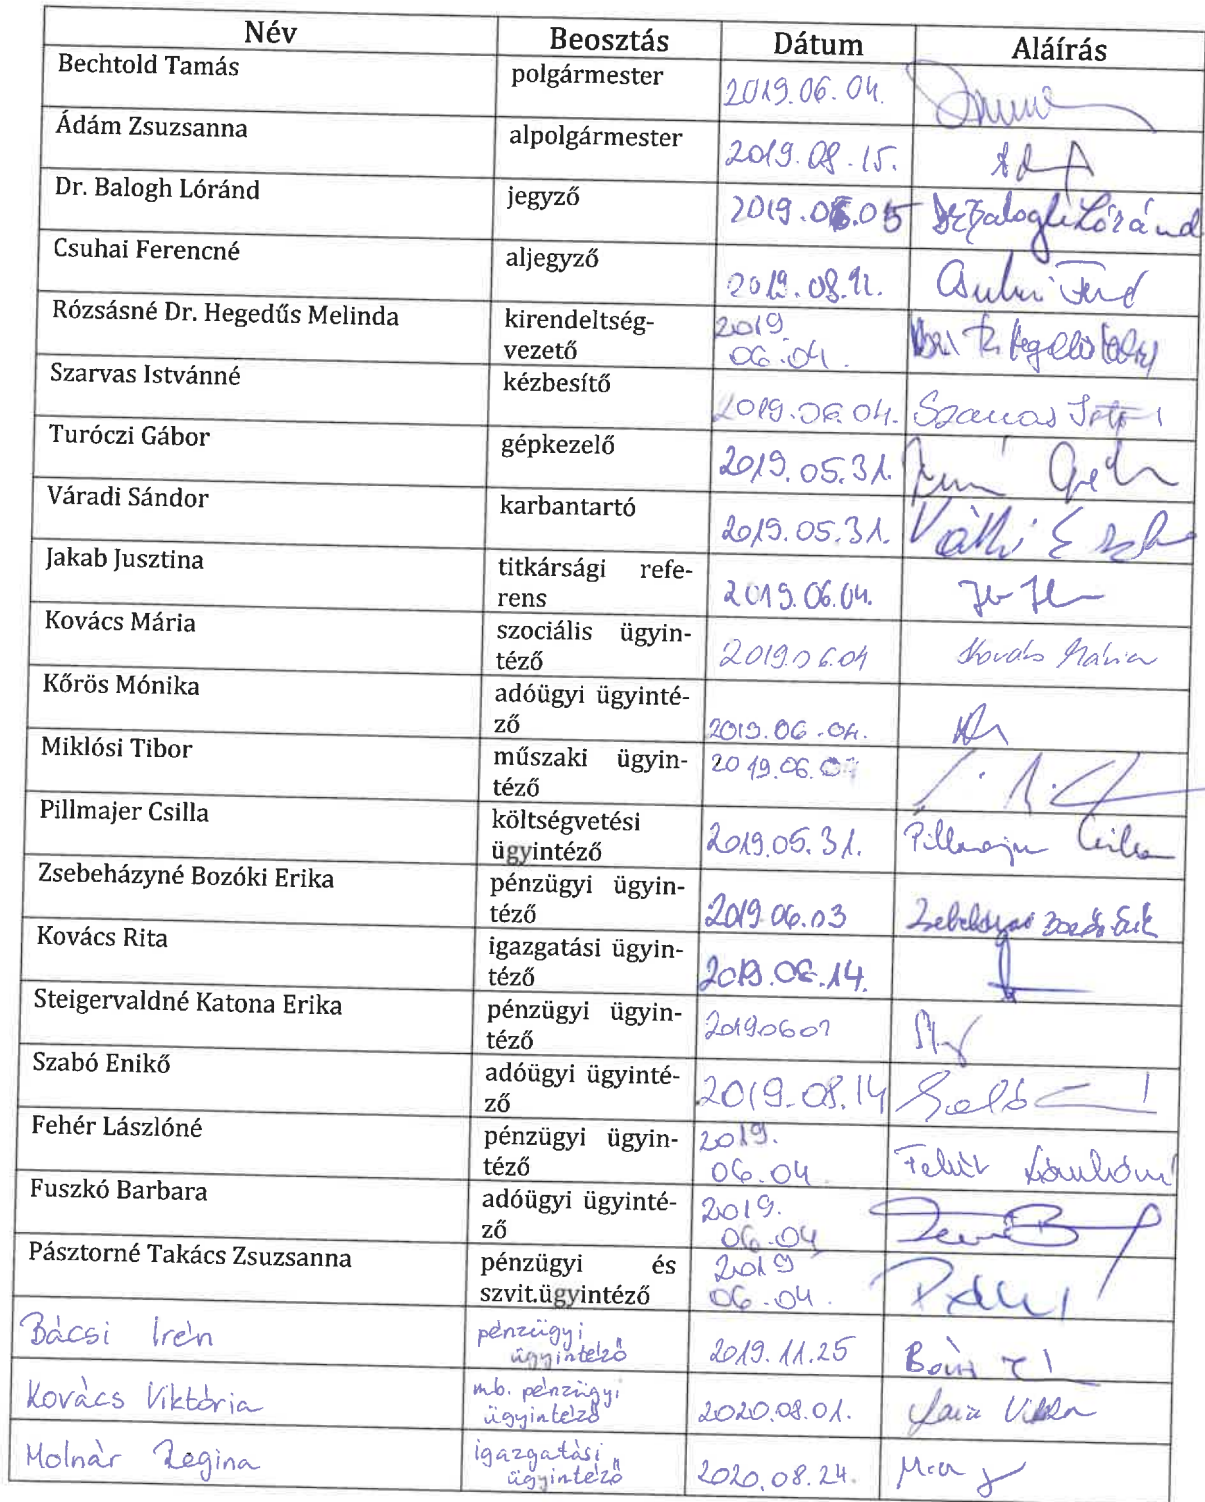 Név Beosztás Dátum Aláírás
Bechtold Tamás polgármester 2019.06.04.
Ádám Zsuzsanna alpolgármester 2019.08.15.
Dr. Balogh Lóránd jegyző 2019.06.05 Dr Balogh Lóránd
Csuhai Ferencné aljegyző 2019.08.12.
Rózsásné Dr. Hegedűs Melinda kirendeltség- 2019
vezető 06.04.
Szarvas Istvánné kézbesítő 2019.06.04. Szarvas
Turóczi Gábor gépkezelő 2019.05.31.
Váradi Sándor karbantartó 2019.05.31.
Jakab Jusztina titkársági refe-
rens 2019.06.04.
Kovács Mária szociális ügyin-
téző 2019.06.04 Kovács Mária
Kőrös Mónika adóügyi ügyinté-
ző 2019.06.04.
Miklósi Tibor műszaki ügyin- 2019.06.04
téző
Pillmajer Csilla költségvetési
ügyintéző 2019.05.31. Pillmajer Csilla
Zsebeházyné Bozóki Erika pénzügyi ügyin-
téző 2019.06.03
Kovács Rita igazgatási ügyin-
téző 2019.06.14.
Steigervaldné Katona Erika pénzügyi ügyin-
téző 20190607
Szabó Enikő adóügyi ügyinté-
ző 2019.08.14 Szabó
Fehér Lászlóné pénzügyi ügyin- 2019.
téző 06.04. Fehér Lászlóné
Fuszkó Barbara adóügyi ügyinté- 2019.
ző 06.04
Pásztorné Takács Zsuzsanna pénzügyi és 2019
szvit.ügyintéző 06.04.
Bácsi Irén pénzügyi
ügyintéző 2019.11.25
Kovács Viktória mb. pénzügyi
ügyintéző 2020.08.01.
Molnár Regina igazgatási
ügyintéző 2020.08.24.